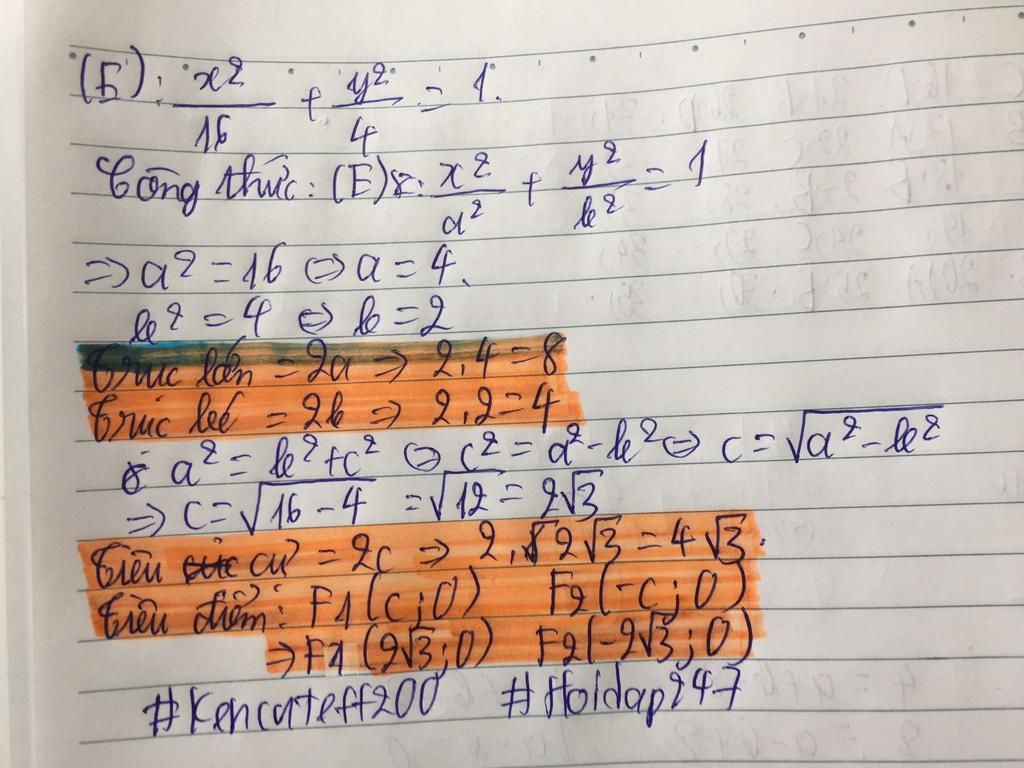 (E): x²/16 + y²/4 = 1.
Công thức: (E): x²/a² + y²/b² = 1
⇒ a² = 16 ⇔ a = 4.
b² = 4 ⇔ b = 2
Trục lớn = 2a ⇒ 2.4 = 8
Trục bé = 2b ⇒ 2.2 = 4
a² = b² + c² ⇔ c² = a² - b² ⇔ c = √(a² - b²)
⇒ c = √(16 - 4) = √12 = 2√3
Tiêu cự = 2c ⇒ 2.2√3 = 4√3.
Tiêu điểm: F1(c;0) F2(-c;0)
⇒ F1(2√3;0) F2(-2√3;0)
#Kencateff200 #Hoidap247